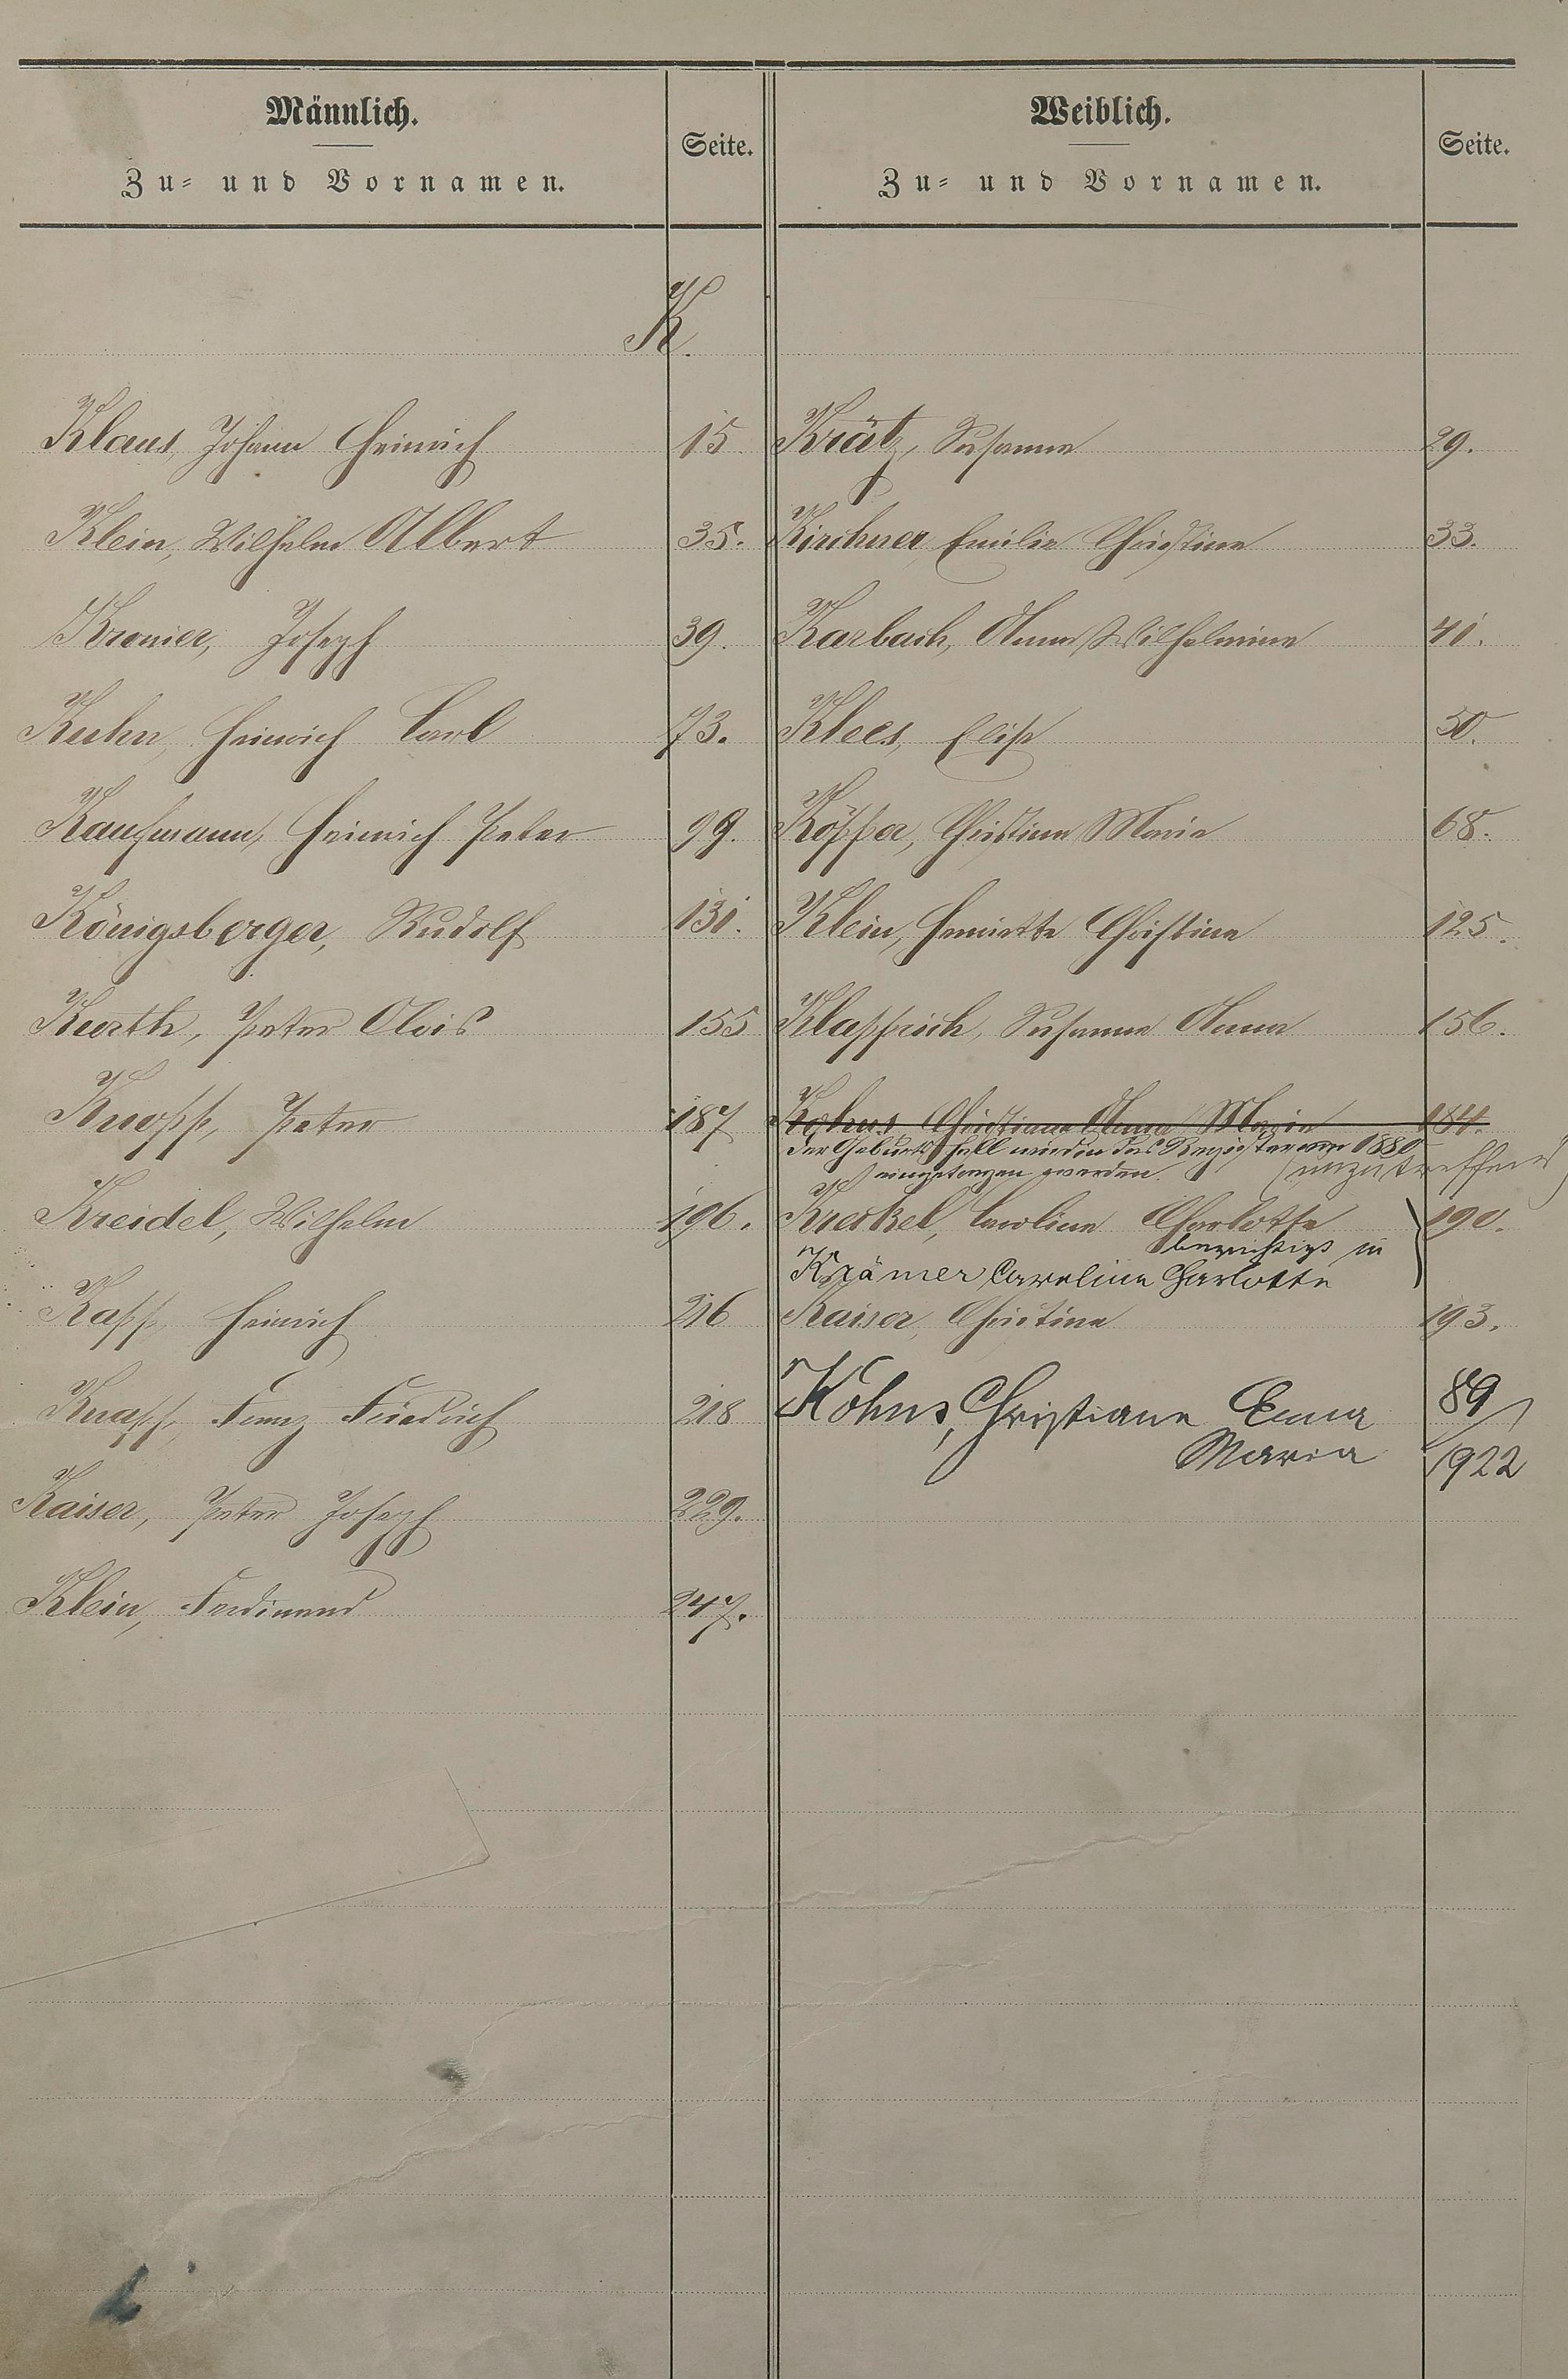 Männlich.
Zu- und Vornamen.
Seite.
Weiblich.
Zu- und Vornamen.
Seite.
K.
Klaus, Johann Heinrich 15
Klein, Wilhelm Albert 35.
Kromer, Joseph 39.
Kuhn, Heinrich Carl 73.
Kaufmann, Heinrich Peter 99.
Königsberger, Rudolf 131.
Kurth, Peter Alois 155
Knopp, Peter 187
Kreidel, Wilhelm 196.
Kapp, Heinrich 216
Knapp, Franz Friedrich 218
Kaiser, Peter Joseph 229.
Klein, Ferdinand 247.
Krätz, Susanna 29.
Kirchner, Emilie Christine 33.
Karbach, Anna Wilhelmine 41.
Klees, Elise 50.
Köpper, Christine Marie 68.
Klein, Henriette Christine 125.
Klapprich, Susanna Anna 156.
Kohns Christiane Anna Maria 184.
Der Geburtsfall in das Register 1880
eingetragen worden. (unzutreffend)
Kreckel, Caroline Charlotte 190.
berichtigt in
Krämer Caroline Charlotte
Kaiser, Christine 193.
Kohns, Christiane Anna 89/
Maria 1922